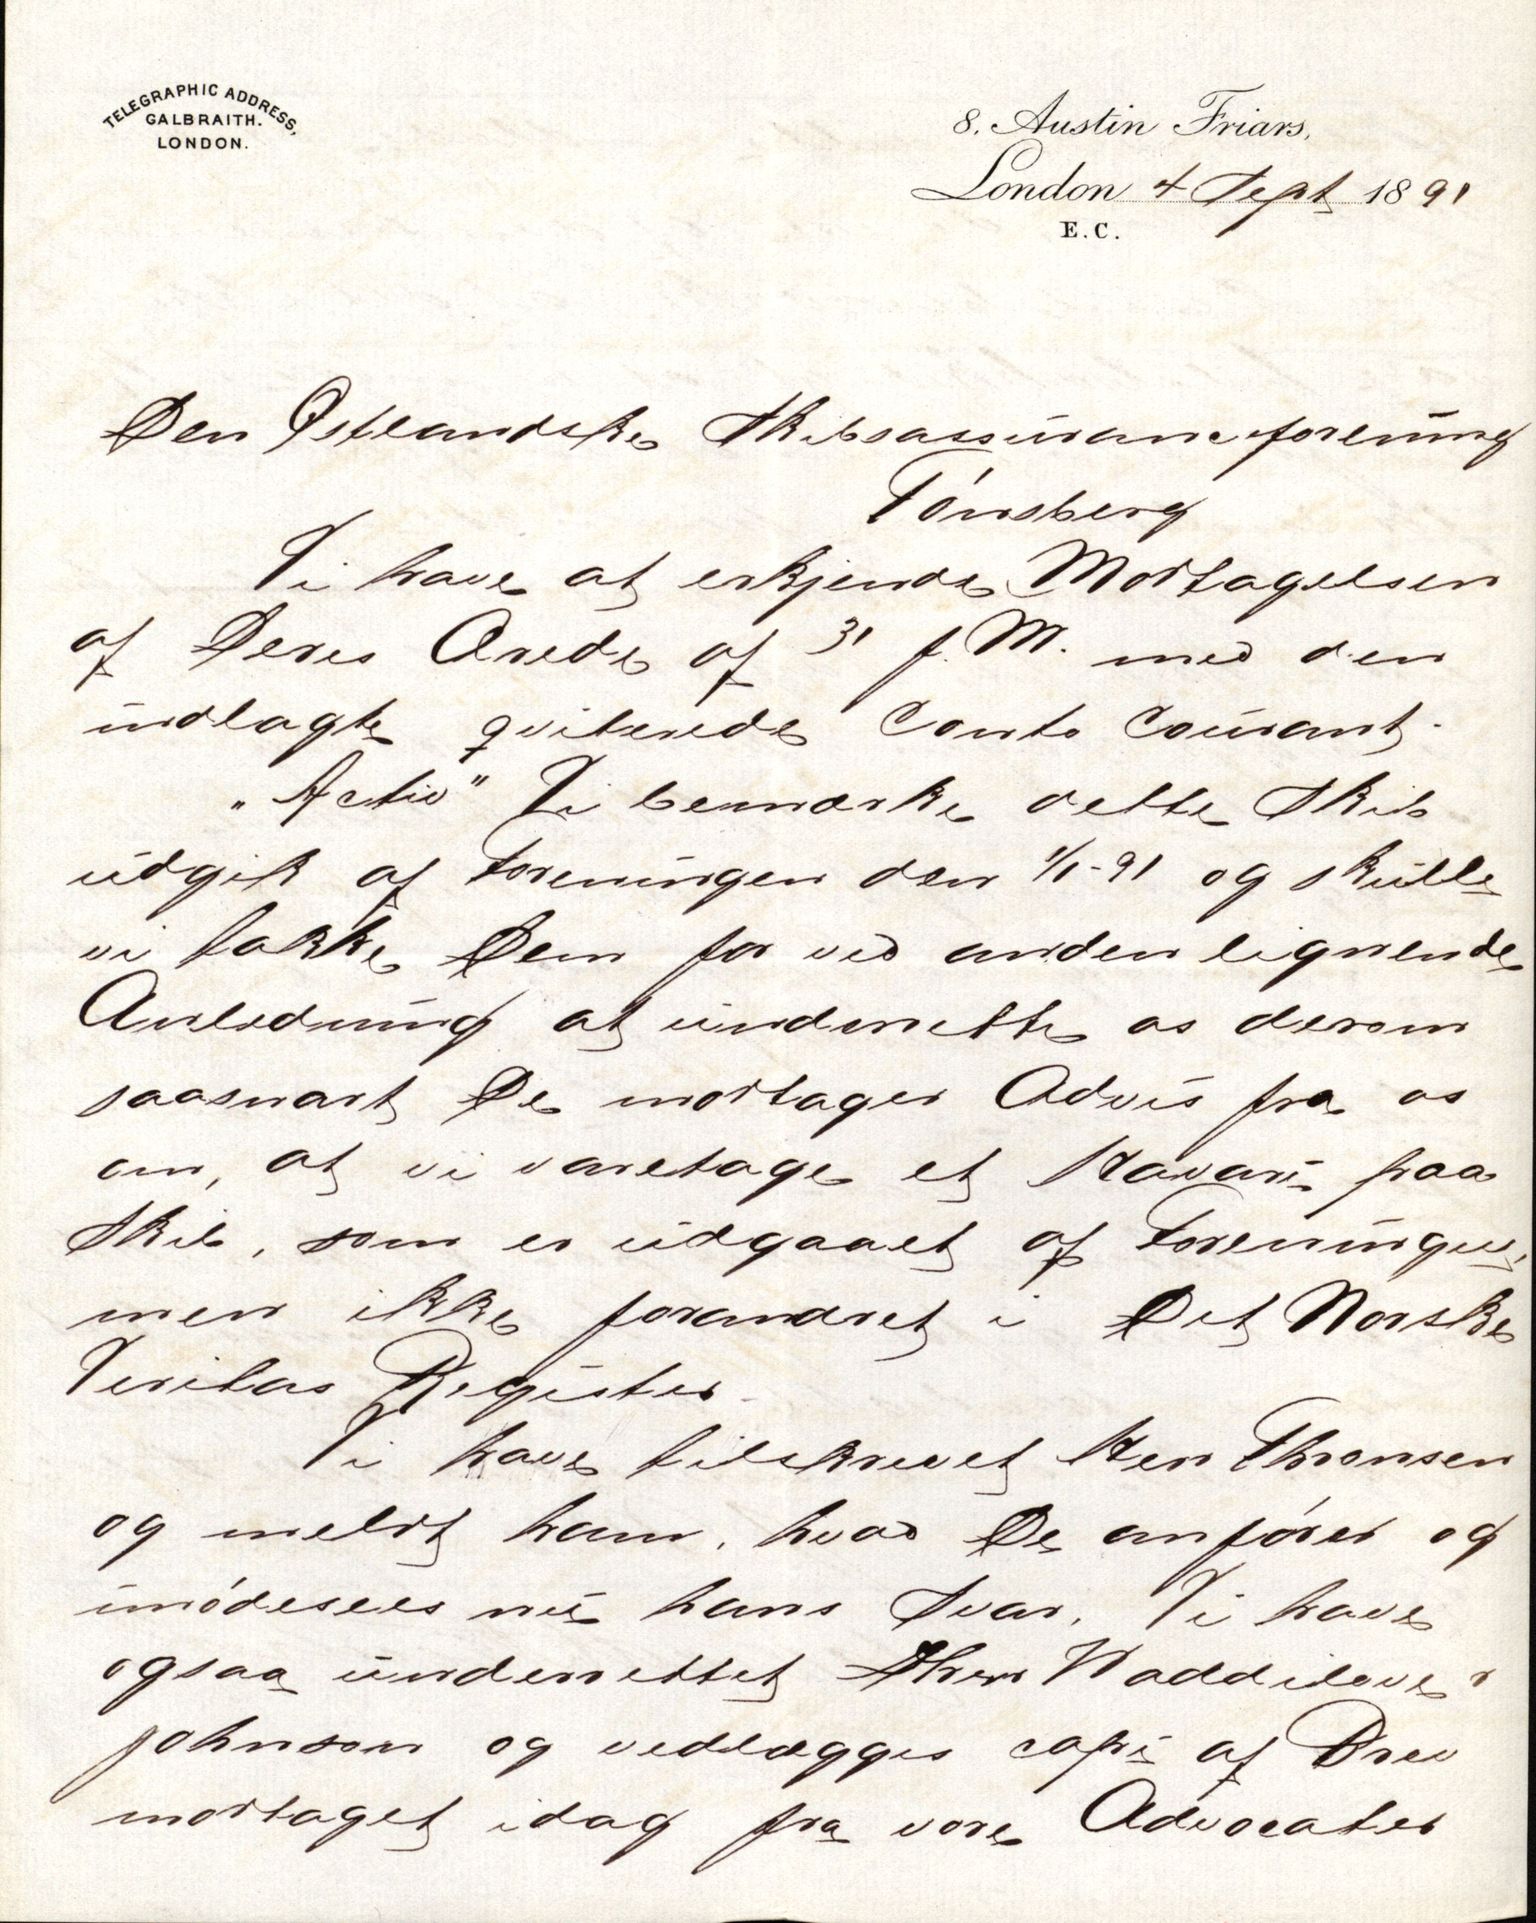 TELEGRAPHIC ADDRESS,
GALBRAITH.
LONDON.
8. Austin Friars,
London 4 Sept 1891
E.C.
Den Østlandske Skibsassuranceforening
Tönsberg
Vi have at erkjende Modtagelsen
af Deres Ærede af 31 f. M. med den
indlagte qviterede Conto Courant.
"Activ" Vi bemærke dette Skib
udgik af Foreningen den 1/1-91 og skulle
vi takke Dem for ved anden lignende
Anledning at underrette os derom
saasnart De modtager Advis fra os
om, at vi varetage et Havari paa
Skib, som er udgaaet af Foreningen,
men ikke forandret i Det Norske
Veritas Register.
Vi have tilskrevet Herr Thronsen
og meldt ham, hvad De anfører og
imødesees nu hans Svar. Vi have
ogsaa underrettet Waddilove &
Johnson og vedlægges copi af Brev
modtaget idag fra vore Advocater